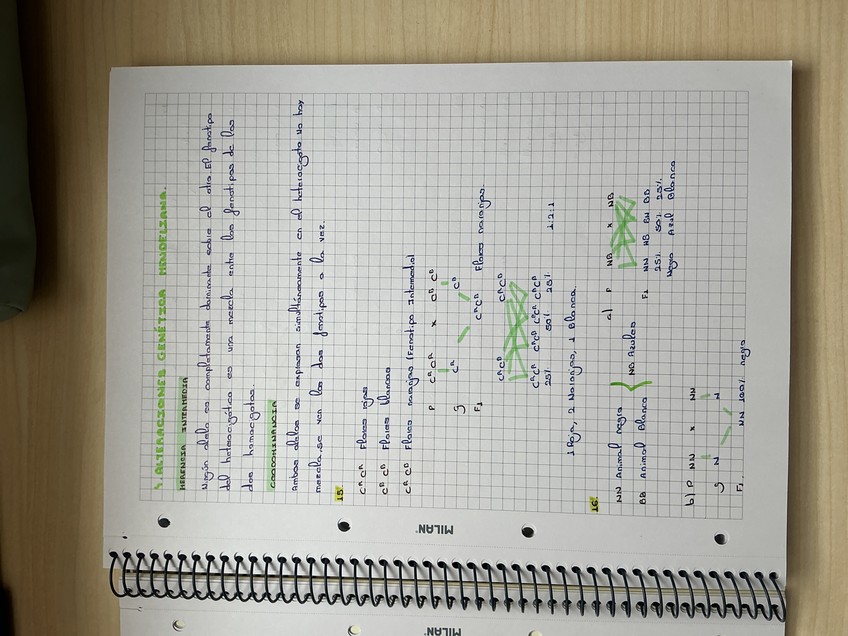 4. ALTERACIONES GENÉTICA MENDELIANA.
HERENCIA INTERMEDIA
Ningún alelo es completamente dominante sobre el otro. El fenotipo
del heterocigótico es una mezcla entre los fenotipos de los
dos homocigotos.
CODOMINANCIA
Ambos alelos se expresan simultáneamente en el heterocigoto. No hay
mezcla, se ven los dos fenotipos a la vez.
15
CᴿCᴿ Flores rojas
CᴮCᴮ Flores blancas
CᴿCᴮ Flores naranjas (Fenotipo Intermedio)
P CᴿCᴿ x CᴮCᴮ
g Cᴿ Cᴮ
F₁ CᴿCᴮ Flores naranjas.
CᴿCᴮ CᴿCᴮ
CᴿCᴿ CᴿCᴮ CᴮCᴿ CᴮCᴮ
25% 50% 25% 1:2:1
1 Roja, 2 Naranjas, 1 Blanca.
16
NN Animal negro
BB Animal Blanco
NB Azules
a) P NB x NB
F₁ NN NB BN BB
25% 50% 25%
Negro Azul Blanco
b) P NN x NN
g N N
F₁ NN 100% negro
MILAN
MILAN